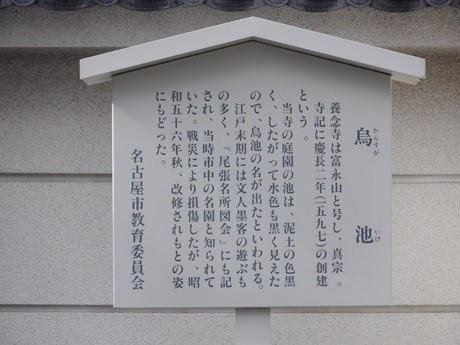 烏池
からすが いけ
養念寺は富永山と号し、真宗。
寺記に慶長二年(一五九七)の創建
という。
当寺の庭園の池は、泥土の色黒
く、したがって水色も黒く見えた
ので、烏池の名が出たといわれる。
江戸末期には文人墨客の遊ぶも
の多く、『尾張名所図会』にも記
され、当時市中の名園と知られて
いた。戦災により損傷したが、昭
和五十六年秋、改修されもとの姿
にもどった。
名古屋市教育委員会